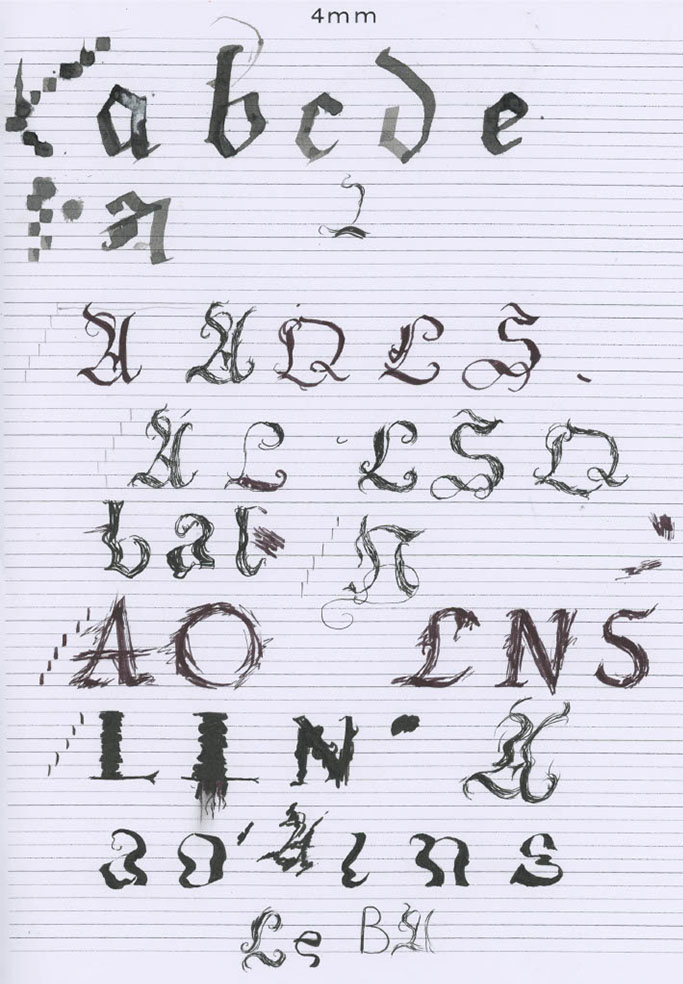 4mm
a b c d e
n 2
A A Q L S
A L L S Q
b a b N
A O L N S
L I N A
a o A i n s
Le BA